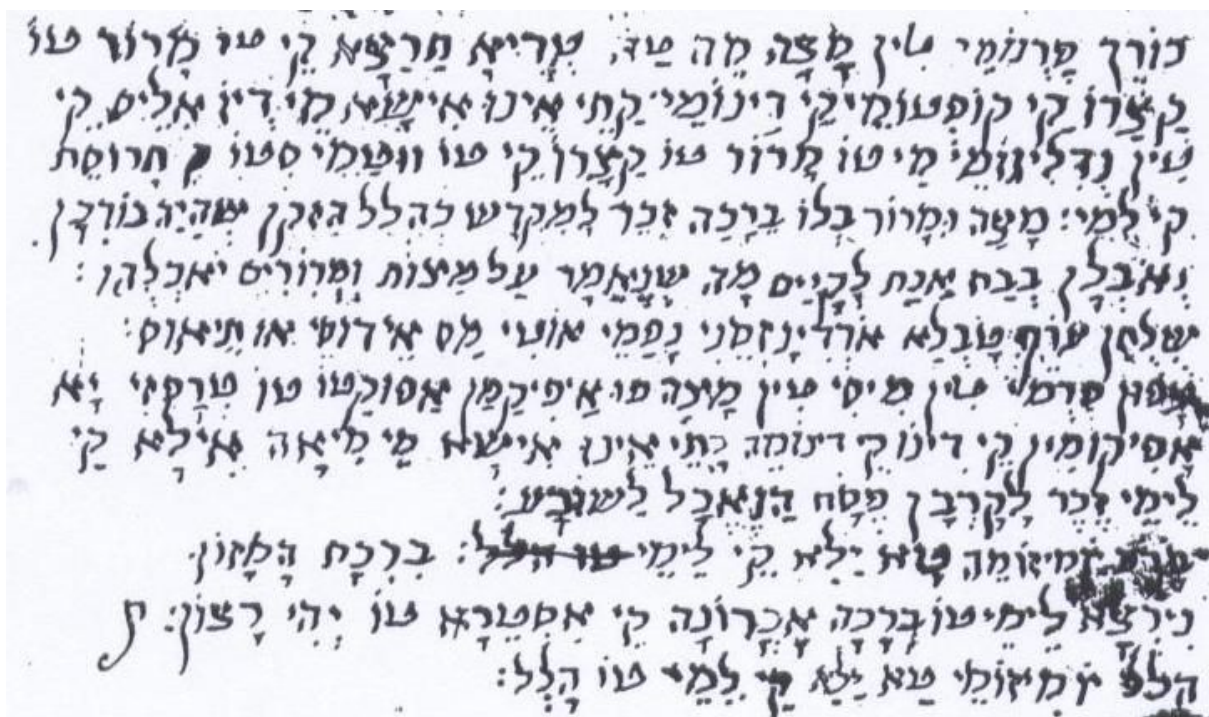 כורך פרנומי טין מצה מה טה טריא חרצא קי טו מרור טו
קצרו קי קופטומי קי דינומי קתי אינו אישא מי דיו אליס קי
טין נדליגומי מי טו מרור טו קצרו קי טו ווטמי סטו חרוסת
קי למי: מצה ומרור בלו ברכה זכר למקדש כהלל הזקן שהיה כורכן
ואוכלן בבת אחת לקיים מה שנאמר על מצות ומרורים יאכלהו:
שלחן עורך טבלא ארדינזמני נפמי אוטי מס אידוסי או תיאוס:
פרמי טין מיסי טין מצה פו איפיקמן אפוקטו טו טרפזי יא
אפיקומין קי דינו קי דינומה כתי אינו אישא מי מיאה אילא קי
לימי זכר לקרבן פסח הנאכל לשובע:
זמיזומה טא ילא קי לימי טו הלל: ברכת המזון
נירצא לימי טו ברכה אכרונה קי אסטרא טו יהי רצון:
הלל זמיזומי טא ילא קי למי טו הלל: